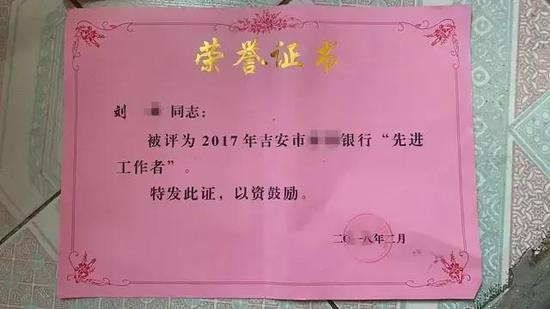 荣誉证书
刘 同志：
被评为 2017 年吉安市 银行“先进
工作者”。
特发此证，以资鼓励。
二 一八年二月